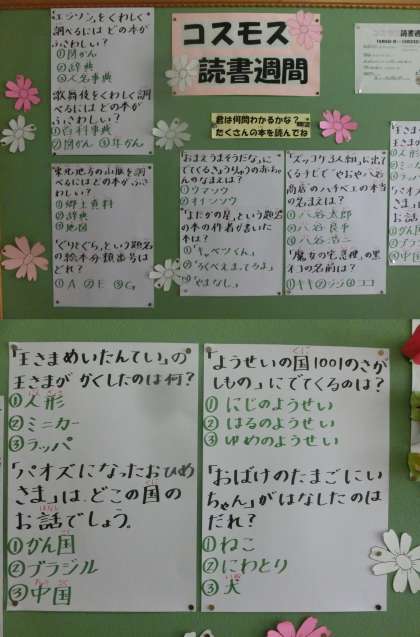 コスモス
読書週間
君は何問わかるかな？
たくさんの本を読んでね
「エジソン」をくわしく
調べるには どの本が
ふさわしい？
①図かん
②辞典
③人名事典
歌舞伎をくわしく調
べるには どの本が
ふさわしい？
①百科事典
②図かん ③年かん
東北地方の山脈を調
べるには どの本がふさ
わしい？
①郷土資料
②辞典
③地図
「ぐりとぐら」という題名
の絵本分類番号は
どれ？
①A ②E ③G
「おまえうまそうだな」に
でてくるきょうりゅうの赤ちゃ
んのなまえは？
①ウマソウ
②オイソソウ
「よだかの星」という題名
の本の作者が書いた
本は？
①「キャベツくん」
②「ろくべえまってろよ」
③「やまなし」
「ズッコケ三人組」に出て
くる
八谷
商店」のハチベエの本当
の名まえは？
①八谷太郎
②八谷良平
③八谷浩二
「魔女の宅急便」の黒
ネコの名前は？
①キキ ②ジジ ③ココ
「王さまめいたんてい」の
王さまが かくしたのは何？
①人形
②ミニカー
③ラッパ
「パオズになったおひめ
さま」は、どこの国の
お話でしょう。
①かん国
②ブラジル
③中国
「ようせいの国1001のさが
しもの」にでてくるのは？
①にじのようせい
②はるのようせい
③ゆめのようせい
「おばけのたまごにい
ちゃん」がはなしたのは
だれ？
①ねこ
②にわとり
③犬